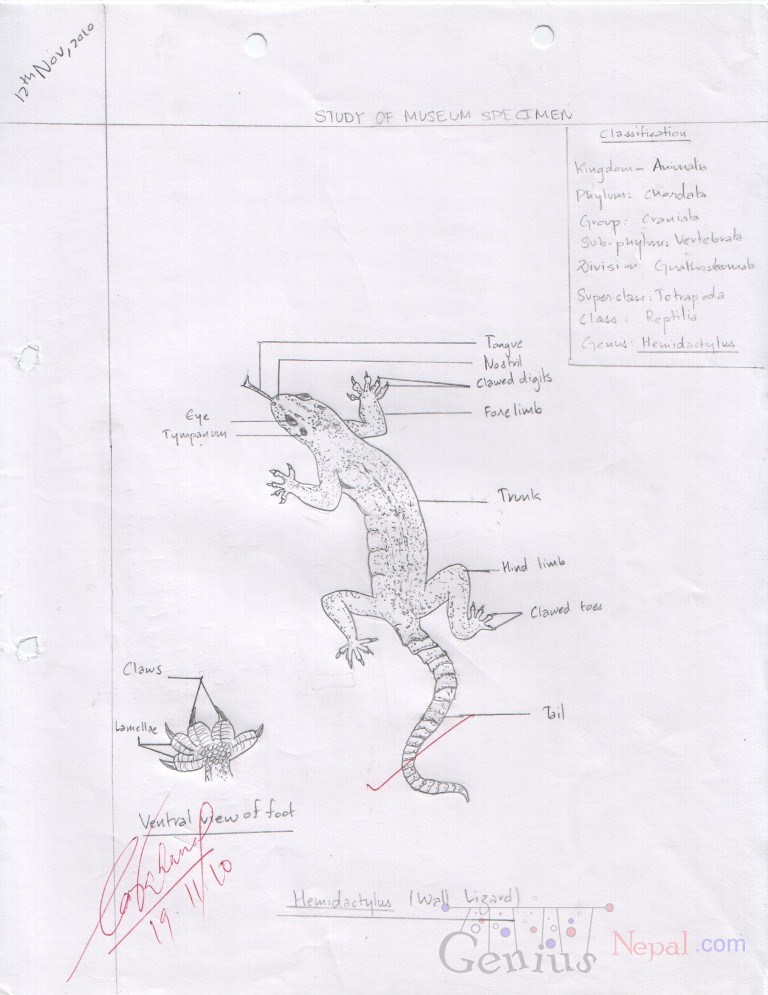 12th Nov, 2010
STUDY OF MUSEUM SPECIMEN
Classification
Kingdom - Animalia
Phylum: Chordata
Group: Craniata
Sub-phylum: Vertebrata
Division Gnathostomata
Superclass: Tetrapoda
Class: Reptilia
Genus: Hemidactylus
Tongue
Nostril
Clawed digits
Forelimb
Eye
Tympanum
Trunk
Hind limb
Clawed toes
Claws
Lamellae
Tail
Ventral view of foot
19.11/10
Hemidactylus (Wall Lizard)
Genius Nepal.com